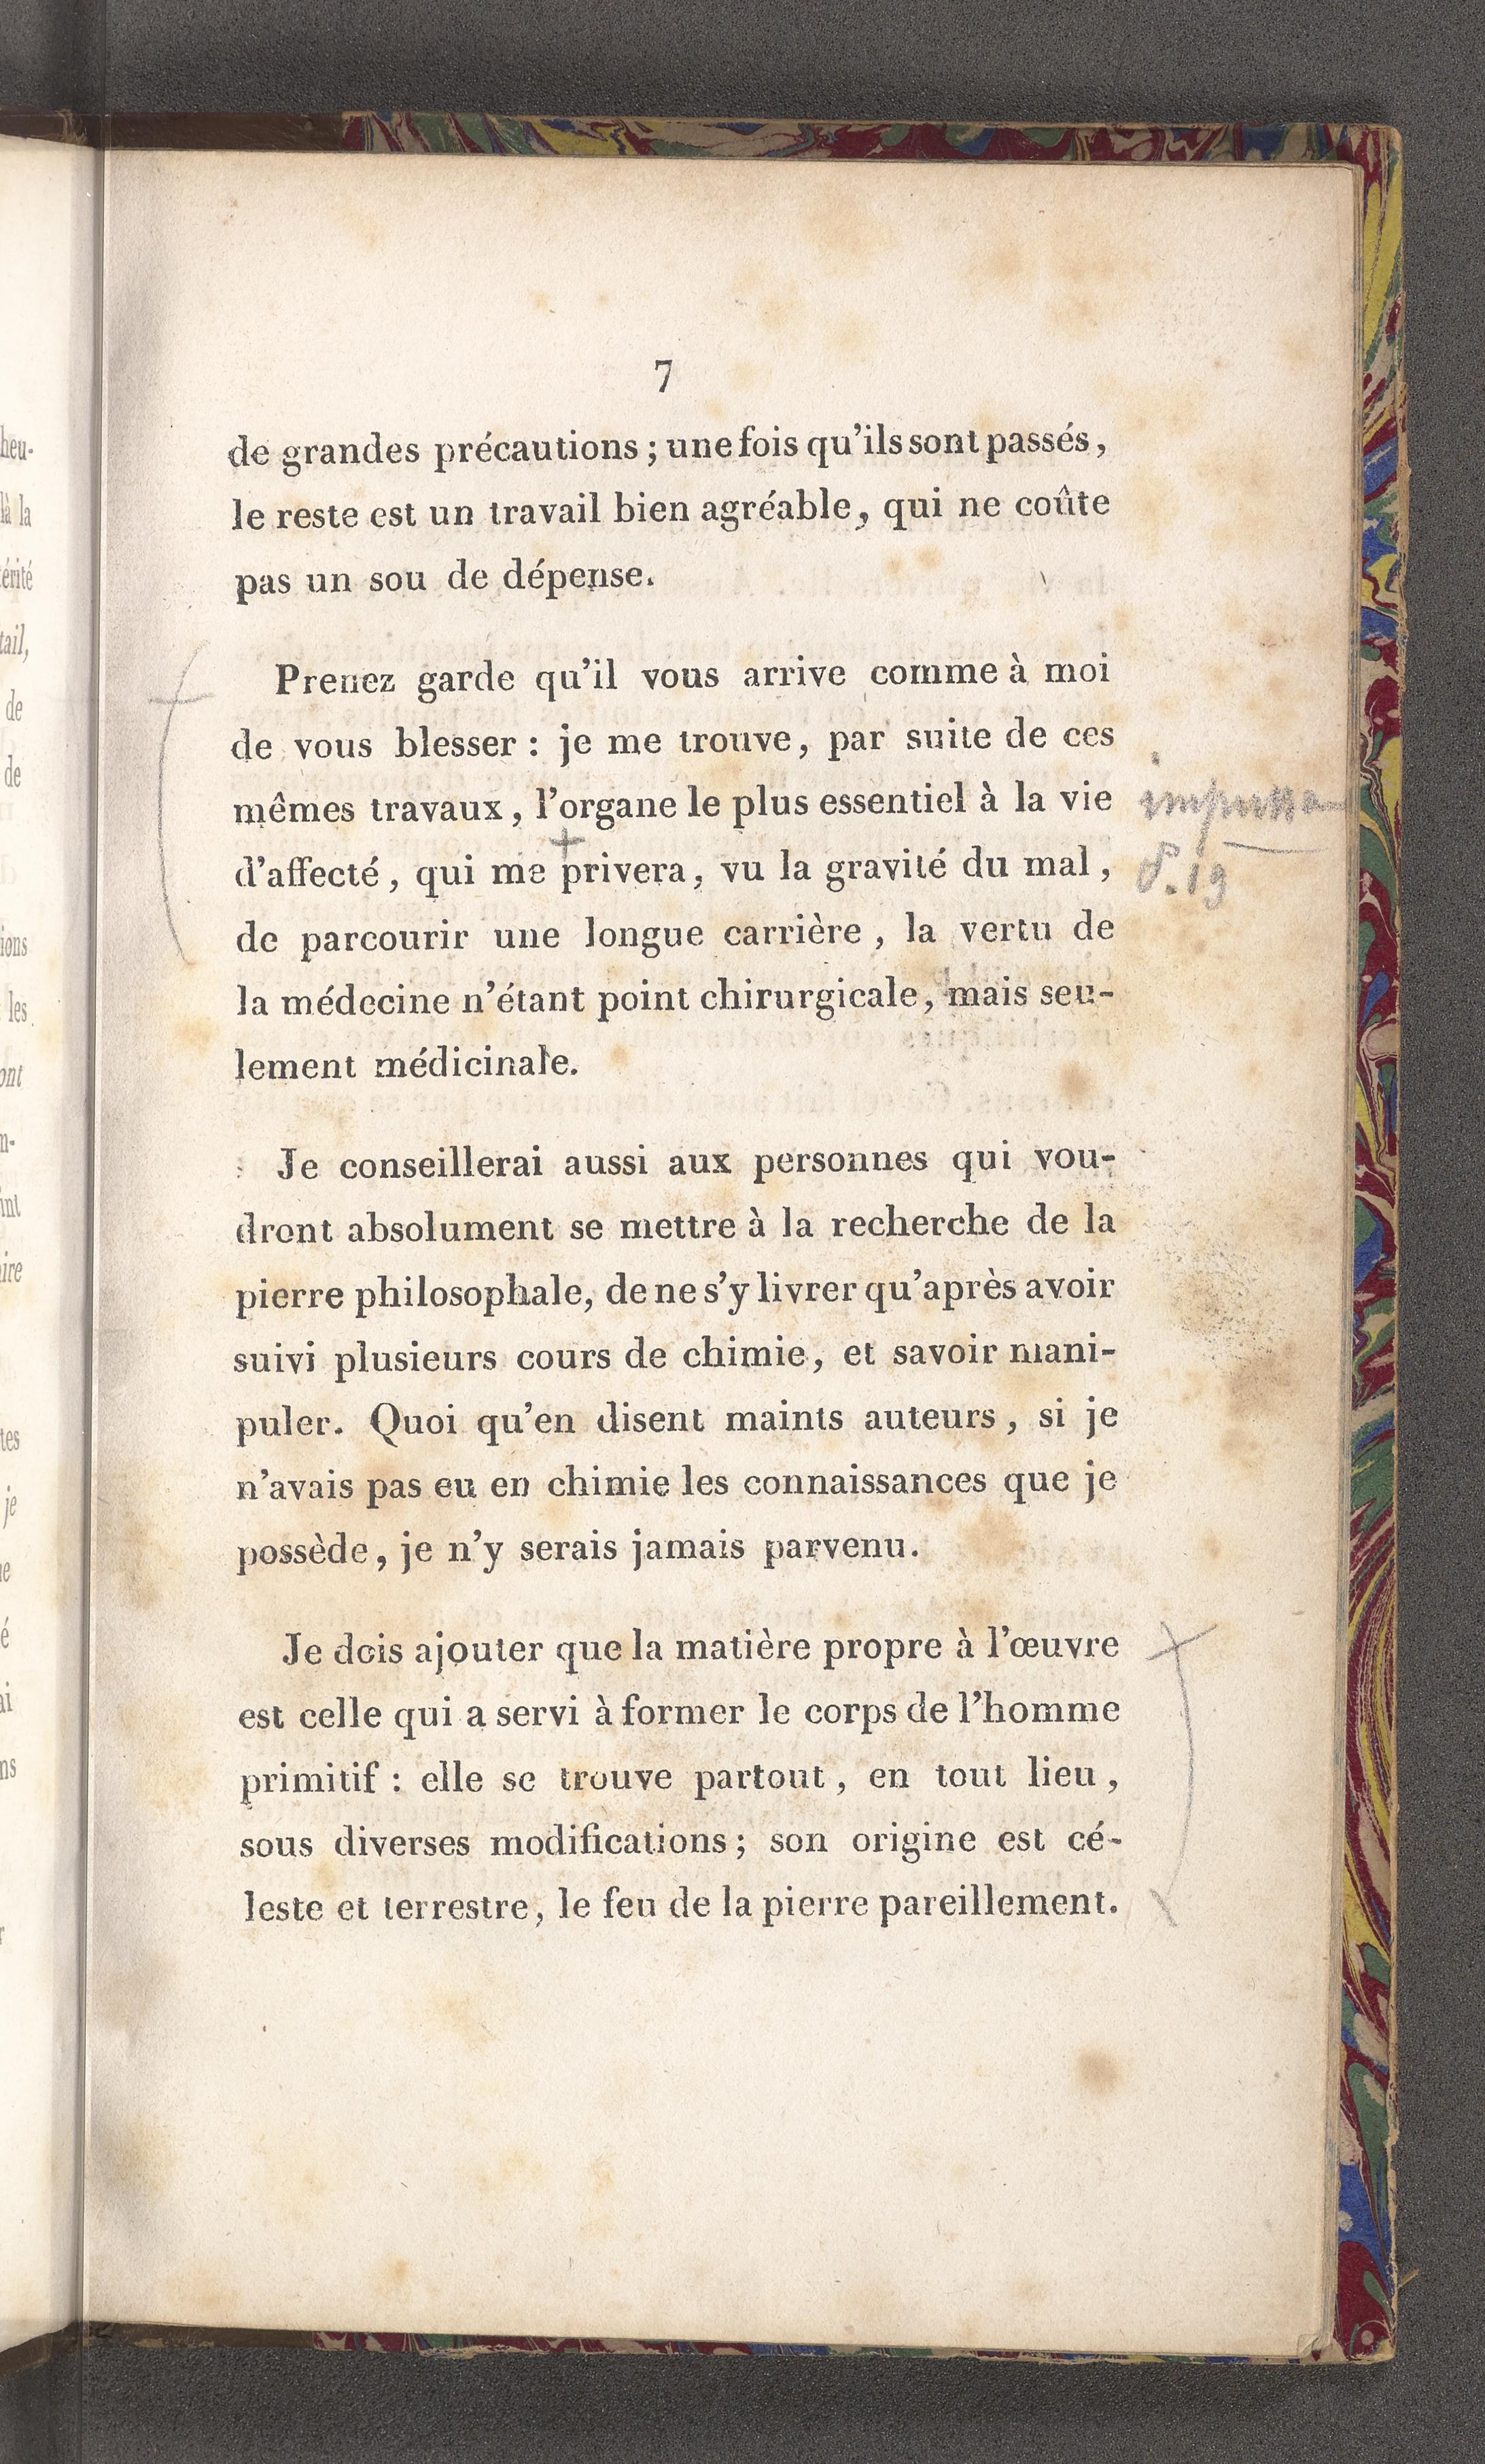 7
de grandes précautions ; une fois qu'ils sont passés,
le reste est un travail bien agréable, qui ne coûte
pas un sou de dépense.
Prenez garde qu'il vous arrive comme à moi
de vous blesser : je me trouve, par suite de ces
mêmes travaux, l'organe le plus essentiel à la vie
d'affecté, qui me privera, vu la gravité du mal,
P. 19
de parcourir une longue carrière, la vertu de
la médecine n'étant point chirurgicale, mais seu-
lement médicinale.
Je conseillerai aussi aux personnes qui vou-
dront absolument se mettre à la recherche de la
pierre philosophale, de ne s'y livrer qu'après avoir
suivi plusieurs cours de chimie, et savoir mani-
puler. Quoi qu'en disent maints auteurs, si je
n'avais pas eu en chimie les connaissances que je
possède, je n'y serais jamais parvenu.
Je dois ajouter que la matière propre à l'œuvre
est celle qui a servi à former le corps de l'homme
primitif : elle se trouve partout, en tout lieu,
sous diverses modifications ; son origine est cé-
leste et terrestre, le feu de la pierre pareillement.